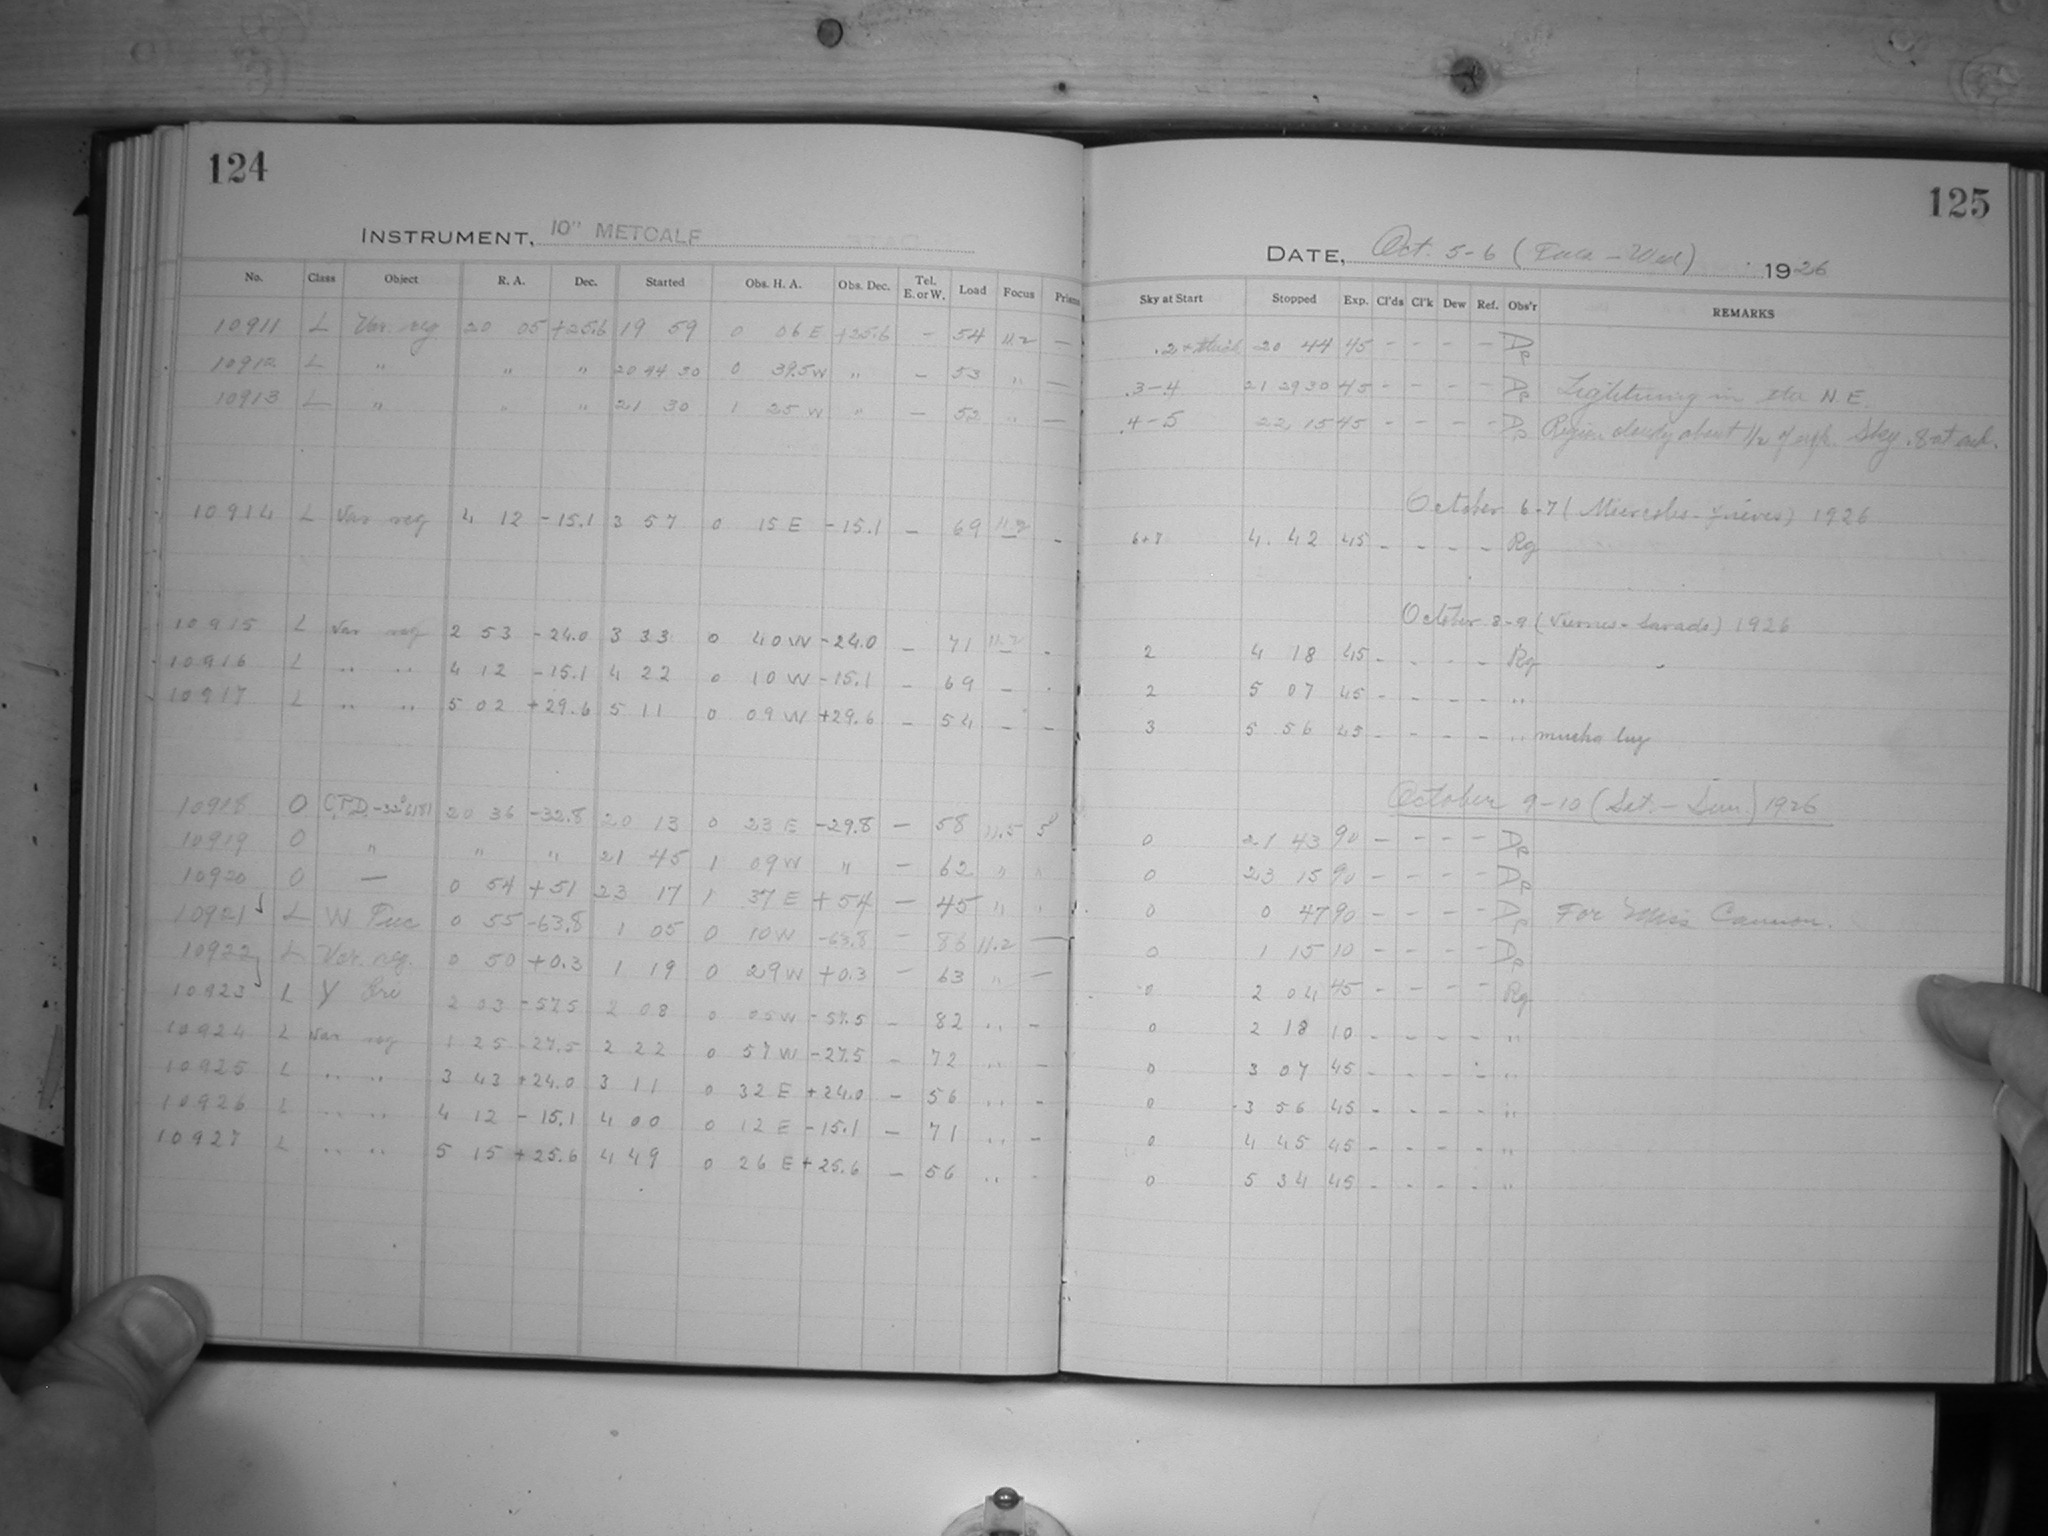 124
INSTRUMENT, 10" METCALF
No. Class Object R. A. Dec. Started Obs. H. A. Obs. Dec. Tel. E. or W. Load Focus Prism
10911 L Var. reg. 20 05 +25.6 19 59 0 06 E +25.6 — 54 11.2 —
10912 L " " " 20 44 30 0 39.5 W " — 53 " —
10913 L " " " 21 30 1 25 W " — 52 " —
10914 L Var reg 4 12 -15.1 3 57 0 15 E -15.1 — 69 11.2 -
10915 L Var reg 2 53 -24.0 3 33 0 40 W -24.0 — 71 11.2 -
10916 L " " 4 12 -15.1 4 22 0 10 W -15.1 - 69 - -
10917 L " " 5 02 +29.6 5 11 0 09 W +29.6 — 54 - -
10918 O C.P.D. -32°6181 20 36 -32.8 20 13 0 23 E -29.8 — 58 11.5 5°
10919 O " " " 21 45 1 09 W " — 62 " "
10920 O — 0 54 +51 23 17 1 37 E +54 — 45 " "
10921 L W Tuc 0 55 -63.8 1 05 0 10 W -63.8 — 86 11.2 —
10922 L Var. reg. 0 50 +0.3 1 19 0 29 W +0.3 — 63 " —
10923 L Y Eri 2 03 -57.5 2 08 0 05 W -57.5 - 82 " -
10924 L Var reg 1 25 -27.5 2 22 0 57 W -27.5 - 72 " -
10925 L " " 3 43 +24.0 3 11 0 32 E +24.0 - 56 " -
10926 L " " 4 12 -15.1 4 00 0 12 E -15.1 — 71 " -
10927 L " " 5 15 +25.6 4 49 0 26 E +25.6 — 56 " -
125
DATE, Oct. 5-6 (Tues - Wed) 1926
Sky at Start Stopped Exp. Cl'ds Cl'k Dew Ref. Obs'r REMARKS
.2 + thick 20 44 45 - - - - De
.3-4 21 29 30 45 - - - - De Lightning in the N.E.
.4-5 22 15 45 - - - - De Region cloudy about 1/2 of exp. Sky .8 at end.
October 6-7 (Miercoles - Jueves) 1926
6+7 4 42 45 - - - - Rg
October 8-9 (Viernes - Savado) 1926
2 4 18 45 - - - - Rg
2 5 07 45 - - - - "
3 5 56 45 - - - - " mucha luz
October 9-10 (Sat. - Sun.) 1926
0 21 43 90 - - - - De
0 23 15 90 - - - - De
0 0 47 90 - - - - De For Miss Cannon.
0 1 15 10 - - - - De
0 2 04 45 - - - - Rg
0 2 18 10 - - - - "
0 3 07 45 - - - - "
0 3 56 45 - - - - "
0 4 45 45 - - - - "
0 5 34 45 - - - - "